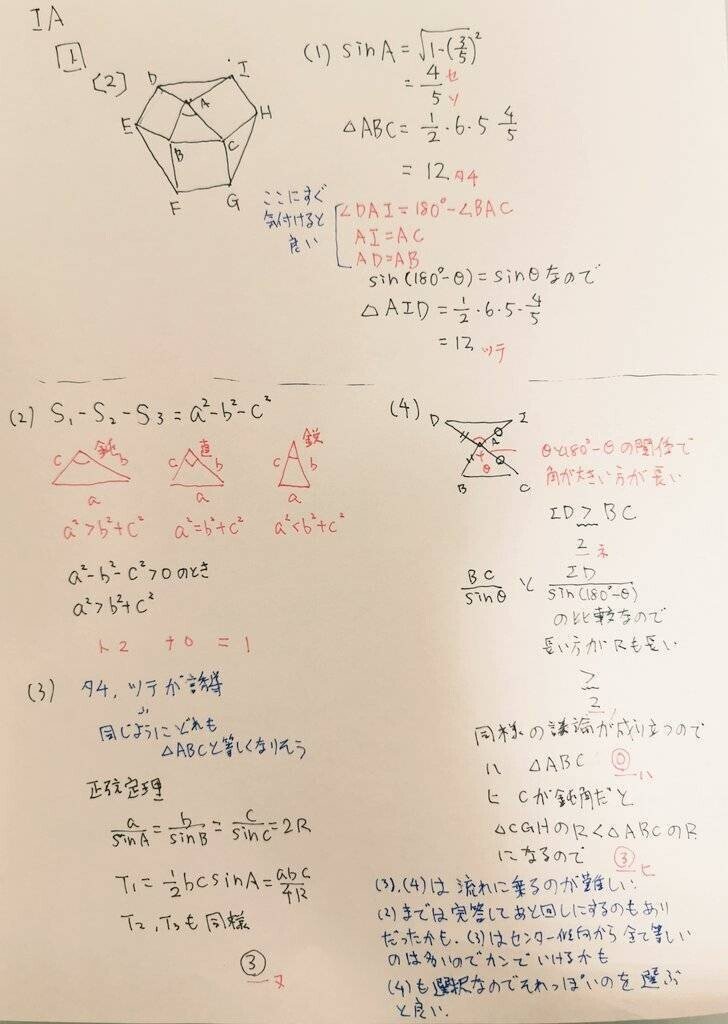 IA
1
[2]
D
I
A
E
H
B
C
F
G
(1) sinA = √1-(3/5)²
= 4/5 セソ
△ABC = 1/2・6・5 4/5
= 12 タチ
ここにすぐ
気付けると
良い
∠DAI = 180°-∠BAC
AI = AC
AD = AB
sin(180°-θ) = sinθなので
△AID = 1/2・6・5・4/5
= 12 ツテ
(2) S₁-S₂-S₃ = a²-b²-c²
c 鈍 b
a
c 直 b
a
c 鋭 b
a
a²>b²+c² a²=b²+c² a²<b²+c²
a²-b²-c²>0のとき
a²>b²+c²
ト2 ナ0 = 1
(3) タチ, ツテが誘導
同じようにどれも
△ABCと等しくなりそう
正弦定理
a/sinA = b/sinB = c/sinC = 2R
T₁ = 1/2 bc sinA = abc/4R
T₂, T₃も同様
③ ヌ
(4)
D
I
A
θ
B
C
θと180°-θの関係で
角が大きい方が長い
ID > BC
2 ネ
BC/sinθ と ID/sin(180°-θ)
の比較なので
長い方がRも長い
>
2
同様の議論が成り立つので
ハ △ABC ⓪ ハ
ヒ Cが鈍角だと
△CGHのR<△ABCのR
になるので ③ ヒ
(3).(4)は流れに乗るのが難しい.
(2)までは完答してあと回しにするのもあり
だったかも. (3)はセンター傾向から全て等しい
のは多いのでカンでいけるかも
(4)も選択なのでそれっぽいのを選ぶ
と良い.